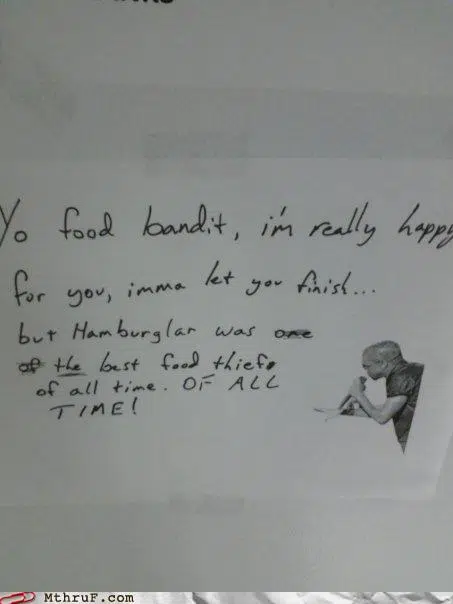 Yo food bandit, i'm really happy
for you, imma let you finish...
but Hamburglar was one
of the best food thiefs
of all time. OF ALL
TIME!
MthruF.com